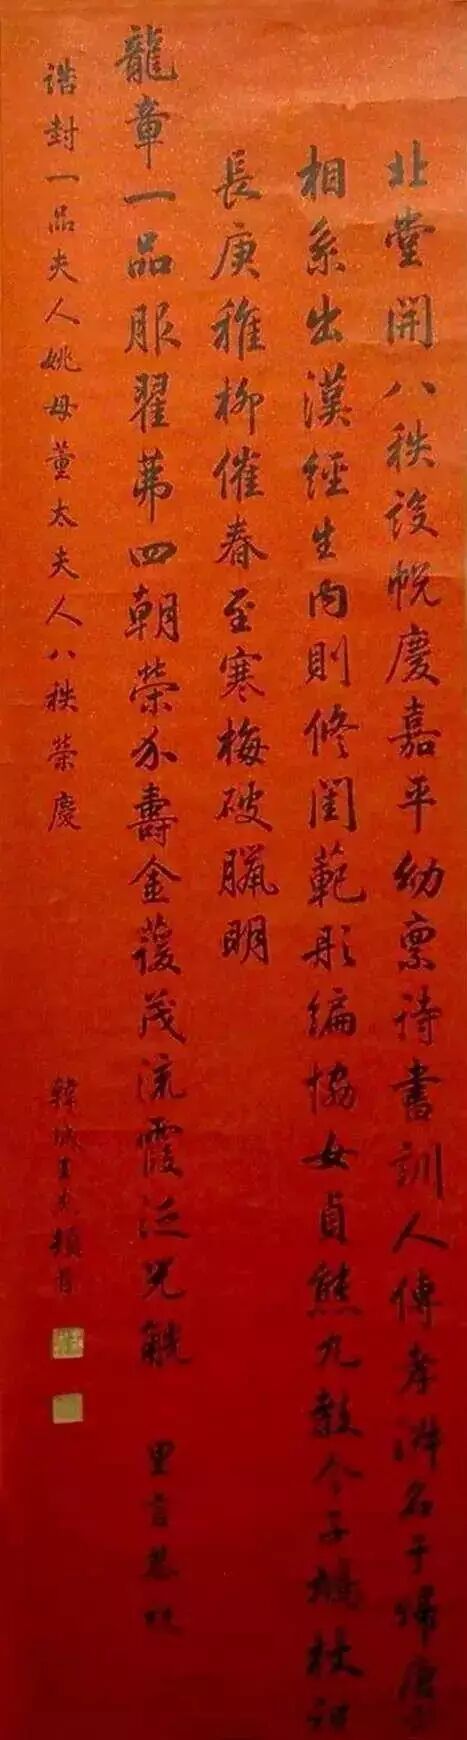 北堂開八秩設帨慶嘉平幼稟詩書訓人傳孝淑名于歸唐
相系出漢經生內則修閨範彤編協女貞熊丸教令子鳩杖
長庚稚柳催春至寒梅破臘明
龍章一品服翟茀四朝榮介壽金萱茂流霞泛兕觥 里言恭祝
誥封一品夫人姚母董太夫人八秩榮慶
韓城王杰頓首